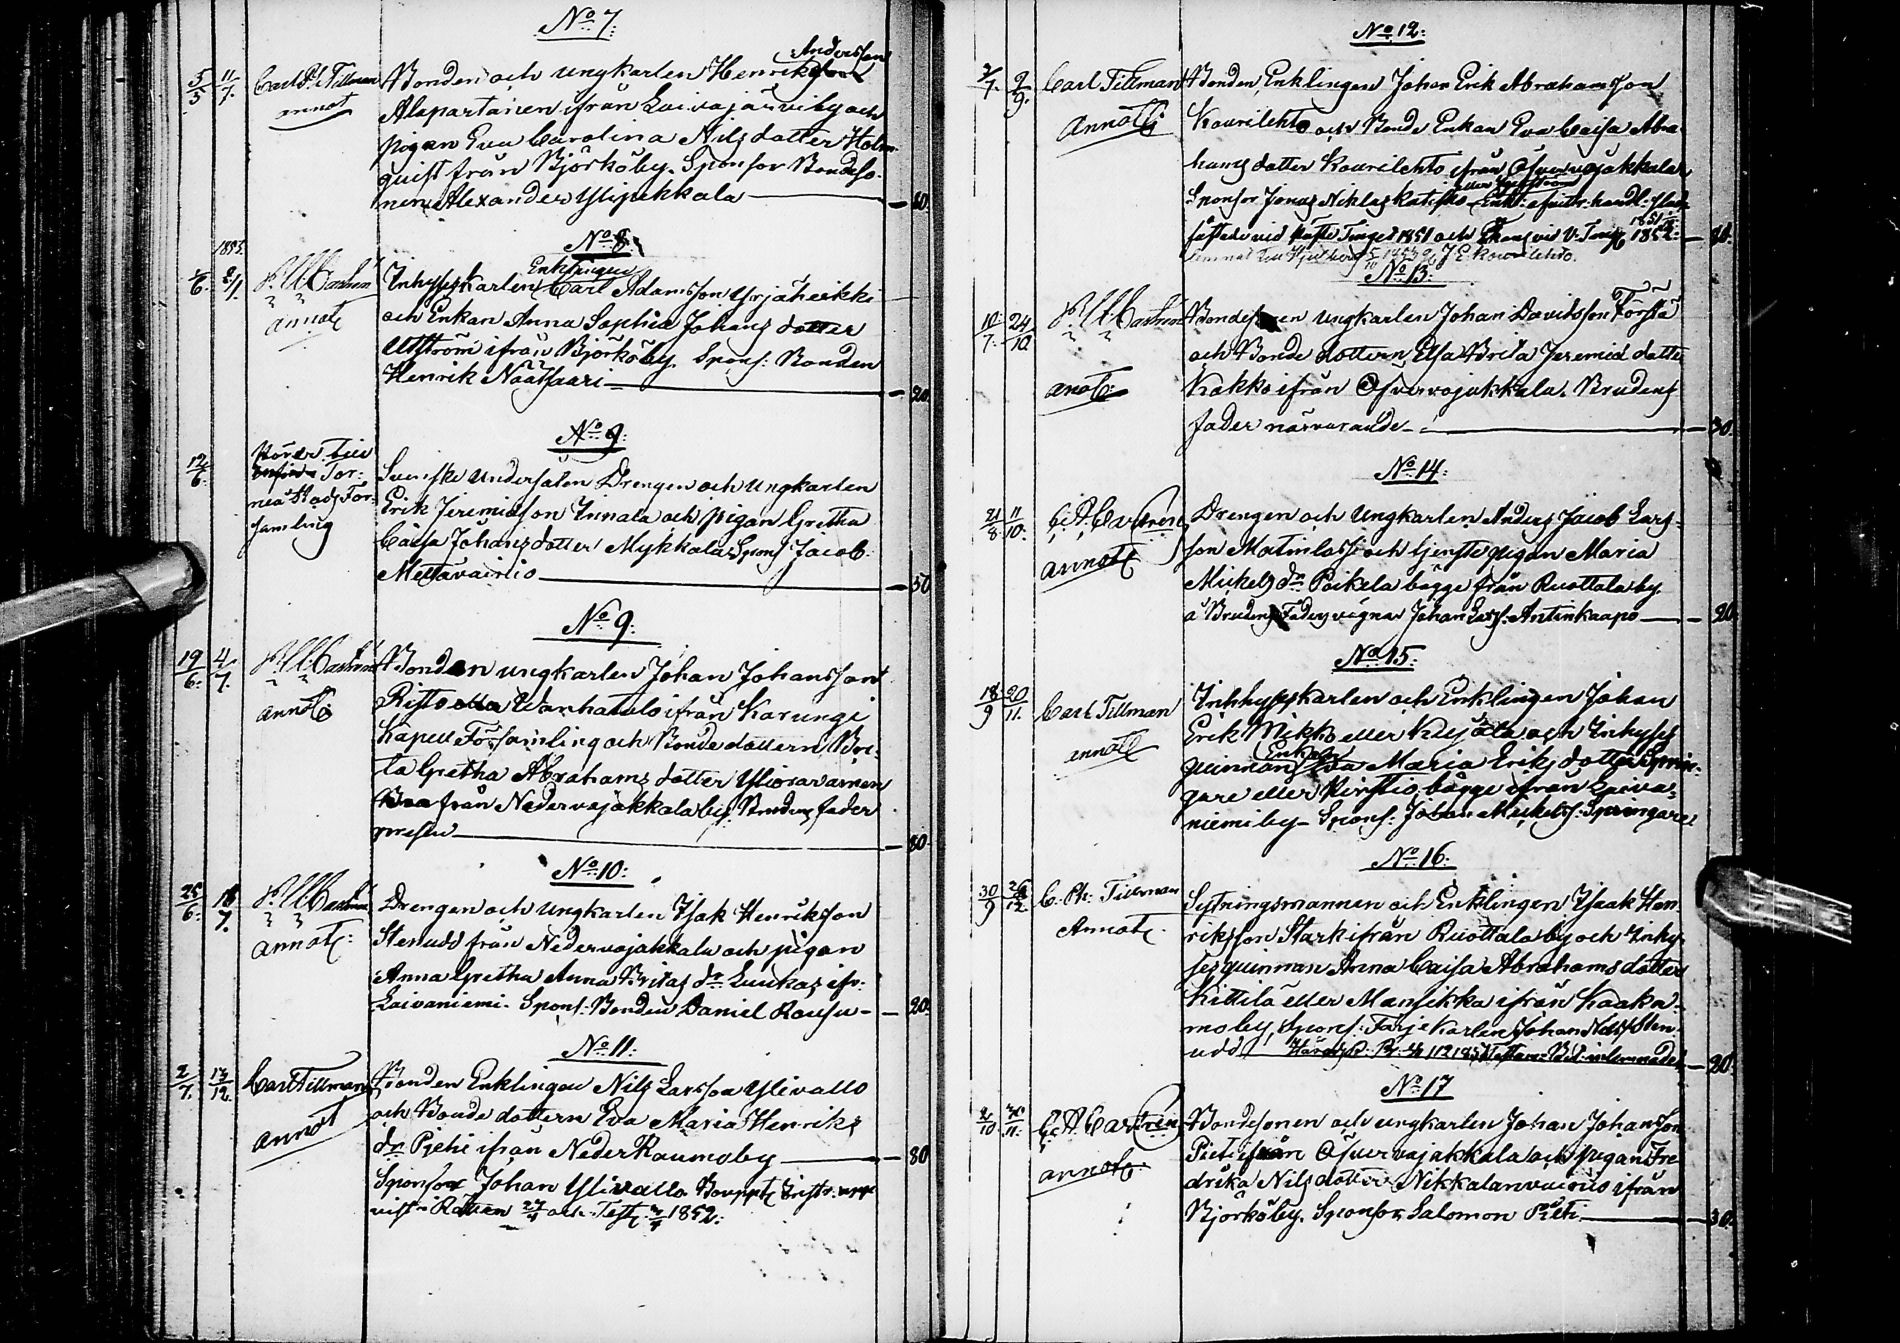 No 7:
Anderson
5/5 11/7. Carl P: Tillman Bonden och ungkarlen Henrik
annot Alapartanen ifrån Laivajärvi by och
pigan Eva Carolina Nils dotter Holm-
quist från Björköby. Sponsor Bondeso-
nen Alexander Ylipekkala
No 8:
1853. Enklingen
/6. 2/1. Inhyses Karlen Carl Adamsson Yrjäheikki
annot och Enkan Anna Sophia Johans dotter
Utström ifrån Björköby. Spons: Bonden
Henrik Näätsaari — 20
No 9:
12/6. Tor-
neå Stads För-
samling
Svenske undersåten Drengen och Ungkarlen
Erik Jeremiasson Innala och pigan Gretha
Caisa Johans dotter Mykkala Spons Jacob
Mettavainio — 50
No 9:
19/6: 4/7. Bonden ungkarlen Johan Johansson
annot Risto Wanhatalo ifrån Karungi
Kapell Församling och Bonde dottern Bri-
ta Gretha Abrahams dotter
från Nedervojakkala by: Brudens fader
— 80
No 10:
25/6: 18/7. Drengen och ungkarlen Isak Henriksson
annot: Stenudd från Nedervojakkala och pigan
Anna Gretha Anna Britas dr Luukas ifr:
Laivaniemi. Spons: Bonden Daniel Rousu — 20:
No 11:
2/7. 13/12 Carl Tillman Bonden Enklingen Nils Larsson Ylivallo
annot och Bonde dottern Eva Maria Henriks
dr Pjehi ifrån Neder Raumoby — 80
Sponsor Johan Ylivallo Bouppt:
1852:
No 12:
2/7. 9/9. Carl Tillman Bonden Enklingen Johan Erik Abrahamsson
annot: Kourilehto och Bonde Enkan Eva Caisa Abra-
hams dotter Kourilehto ifrån Öfvervojakkala
Sponsor Jonas Niklas Katisko
fästade vid Höste Tinget 1851 och vid V. Tinget 1852
J E Kourilehto.
No 13:
10/7. 24/10. Bondesonen ungkarlen Johan Davidsson Förstä
och Bonde dottern Elsa Brita Jeremiæ dotter
anot: Kakko ifrån Öfvervojakkala. Brudens
fader närvarande — 30
No 14:
21/8 11/10. C: A: Castrén Drengen och Ungkarlen Anders Jacob Lars-
annot son Matinlassi och tjenste pigan Maria
Mickels dr Poikela bägge från Ruottala by
å Brudens Faders vägnar Johan Larss: Antinkaapo — 20
No 15:
18/9 20/11. Carl Tillman Inhyses karlen och Enklingen Johan
annot Erik Mikko eller Kujala och Inhyses
Enkan
quinnan Maria Eriks dotter Sprin-
gare eller Kirstio, bägge ifrån Laiva-
niemi by — Spons: Johan Mickelss: Springare
No 16:
30/9 C. Ph: Tillman Sytningsmannen och Enklingen Isaak Hen-
Annot. riksson Stark ifrån Ruottala by och Inhy-
ses quinnan Anna Caisa Abrahams dotter
Kittilä eller Mansikka ifrån Kaaka-
mo by, Spons: Färjekarlen Johan Nilss: Sten-
udd
No 17
2/10 C: A: Castrén Bondesonen och ungkarlen Johan Johansson
annot: Pieti ifrån Öfvervojakkala och pigan Fre-
drika Nils dotter Nikkalanvainio ifrån
Björköby. Sponsor Salomon Pieti — 30